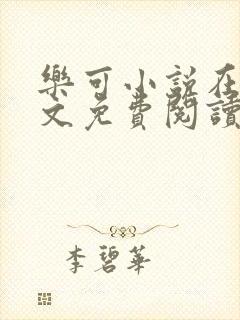 樂可小說在
文免費閱讀
李碧華